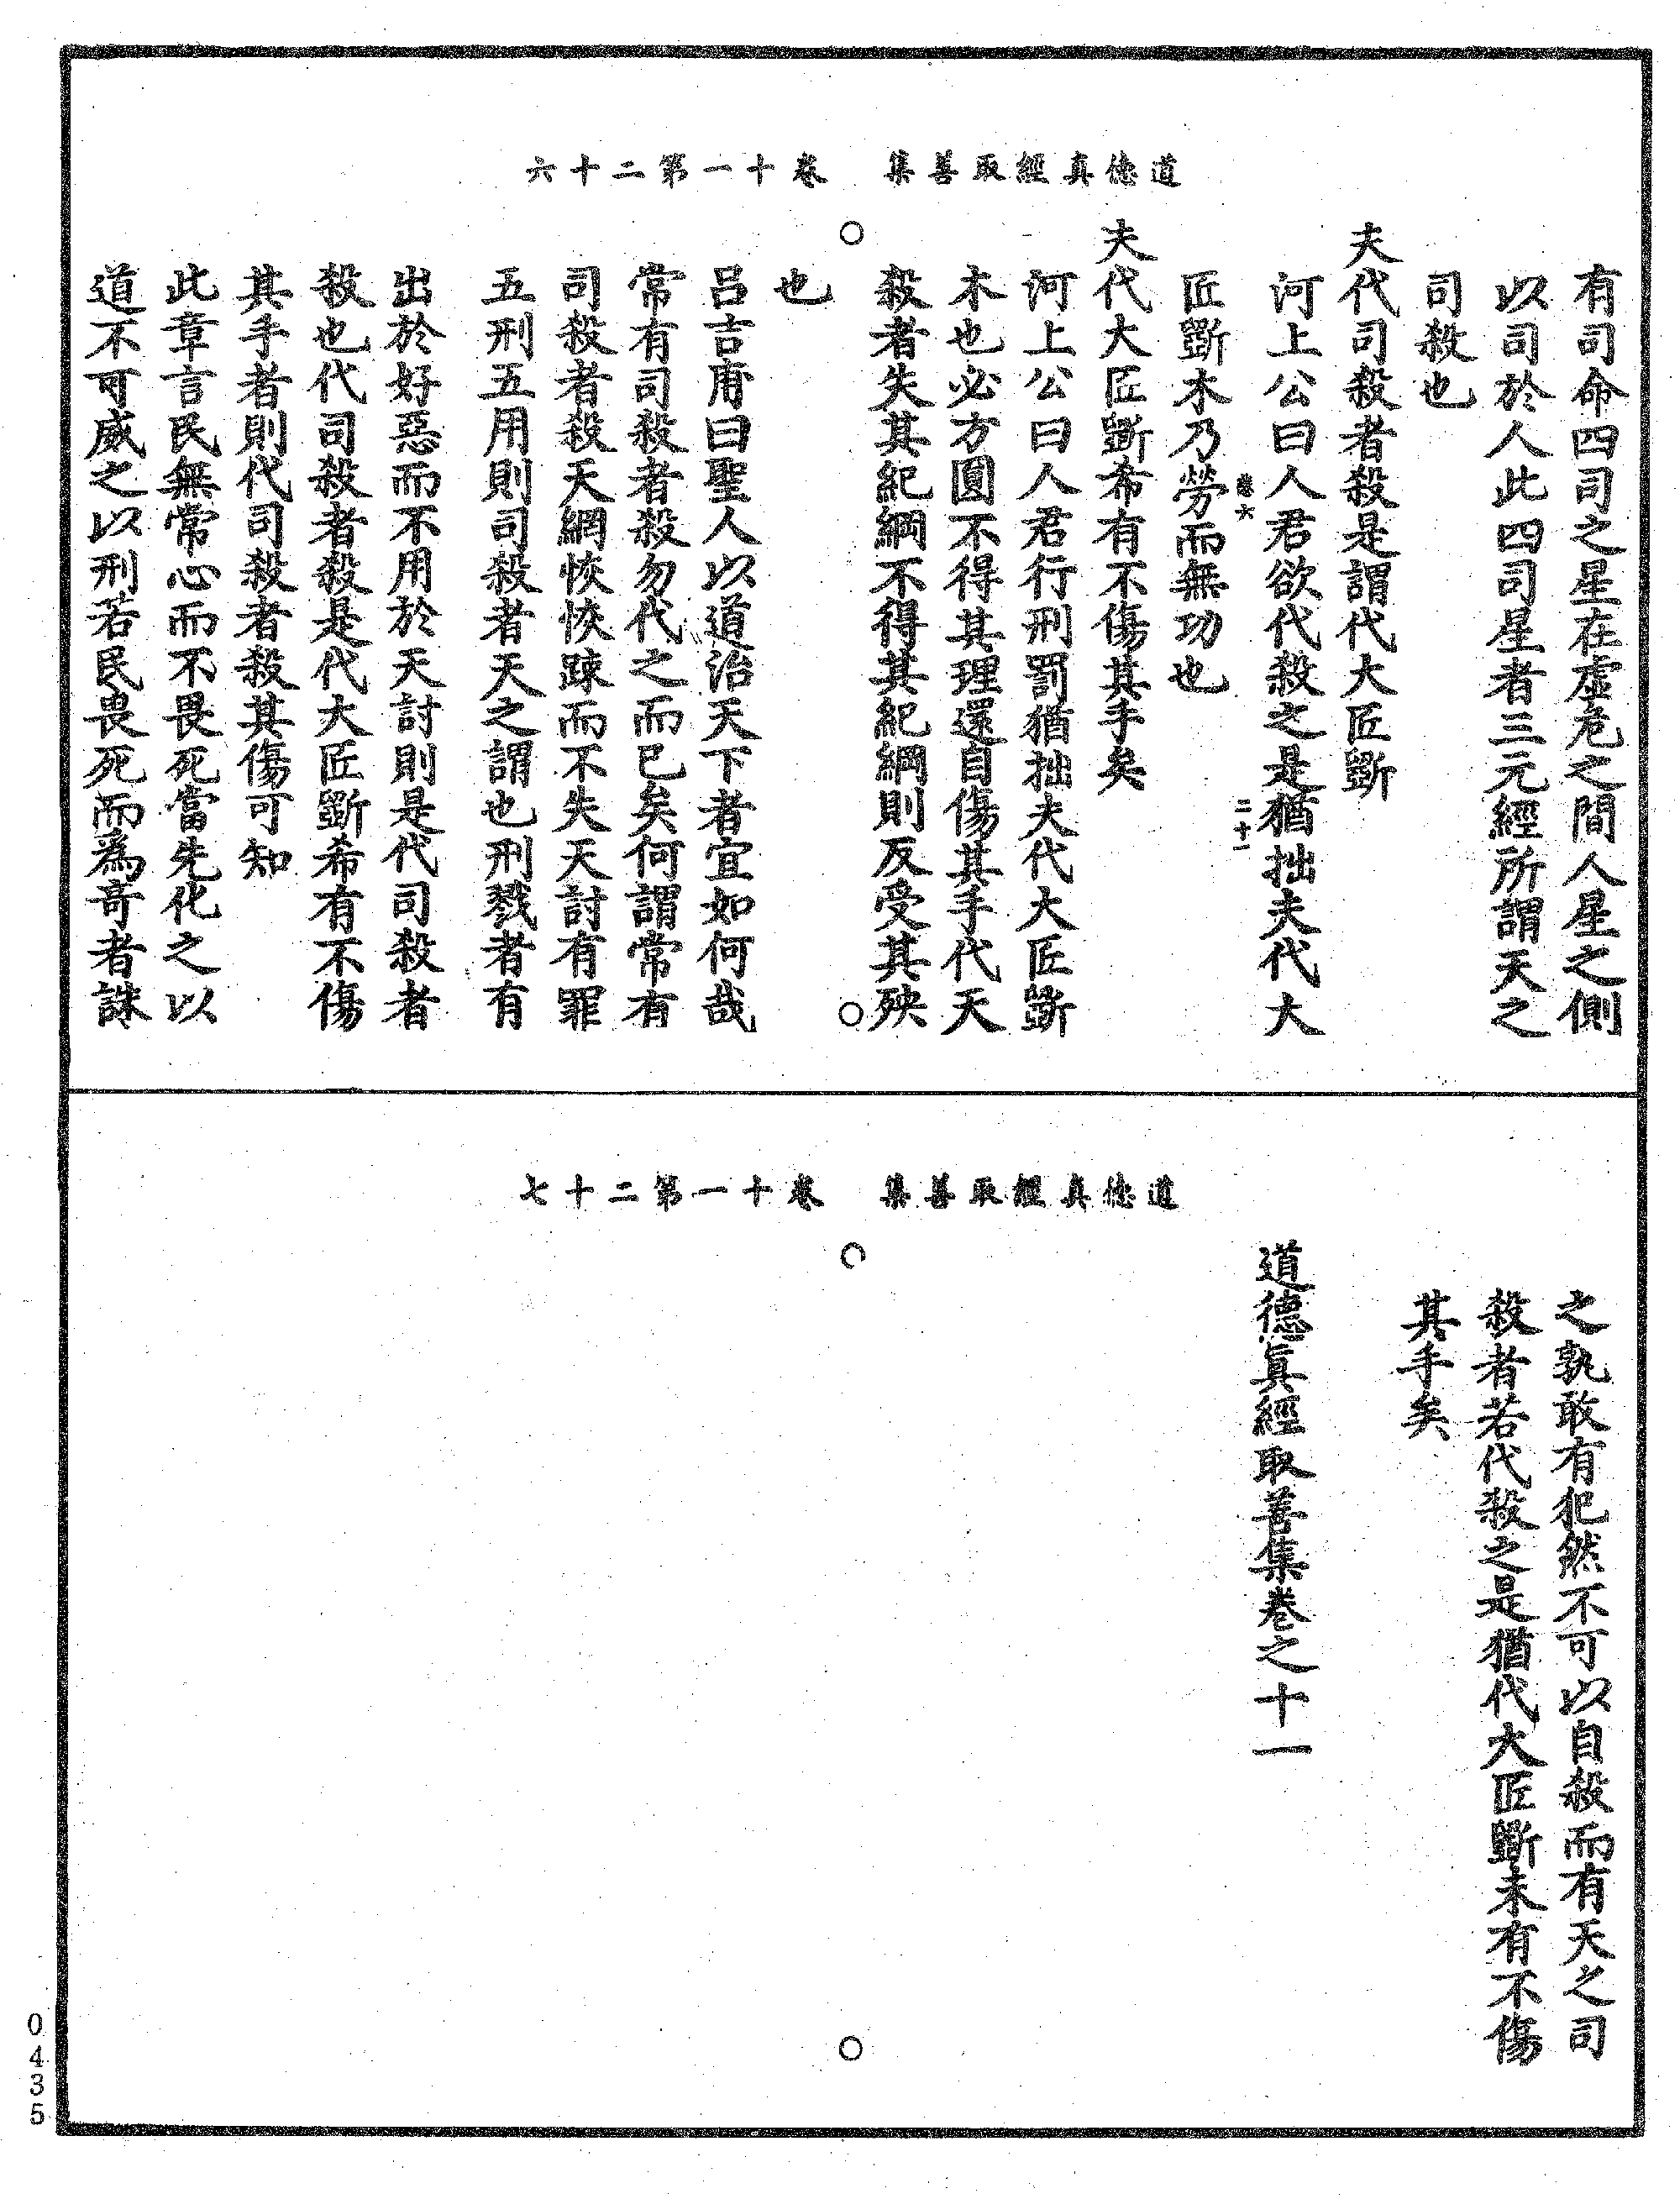 道德真經取善集　卷十一第二十六
有司命四司之星在虛危之間人星之側
以司於人此四司星者三元經所謂天之
司殺也
夫代司殺者殺是謂代大匠斲
河上公曰人君欲代殺之是猶拙夫代大
二十一
匠斲木乃勞而無功也
夫代大匠斲希有不傷其手矣
河上公曰人君行刑罰猶拙夫代大匠斲
木也必方圓不得其理還自傷其手代天
殺者失其紀綱不得其紀綱則反受其殃
也
呂吉甫曰聖人以道治天下者宜如何哉
常有司殺者殺勿代之而已矣何謂常有
司殺者殺天網恢恢踈而不失天討有罪
五刑五用則司殺者天之謂也刑戮者有
出於好惡而不用於天討則是代司殺者
殺也代司殺者殺是代大匠斲希有不傷
其手者則代司殺者殺其傷可知
此章言民無常心而不畏死當先化之以
道不可威之以刑若民畏死而為奇者誅
道德真經取善集　卷十一第二十七
之孰敢有犯然不可以自殺而有天之司
殺者若代殺之是猶代大匠斲未有不傷
其手矣
道德眞經取善集卷之十一
0435